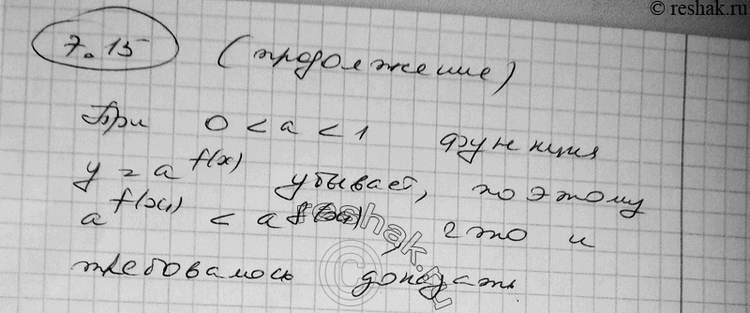 © reshak.ru
7.15 (продолжение)
При 0 < a < 1 функция
y = a^f(x) убывает, поэтому
a^f(x₁) < a^f(x₂), что и
требовалось доказать
reshak.ru
©